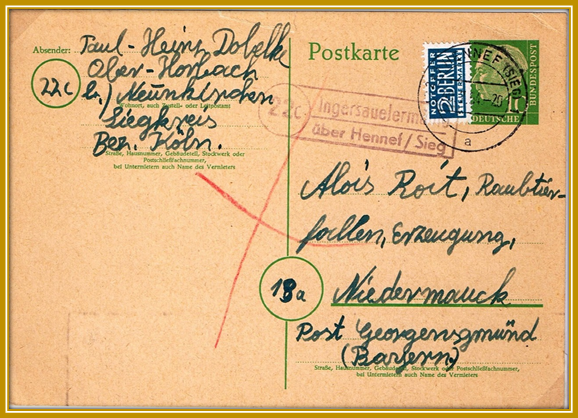 Absender:
Paul-Heinz Dobelk
Ober-Horbach
22c
Neunkirchen
Wohnort, auch Zustell- oder Leitpostamt
Siegkreis
Bez. Köln.
Straße, Hausnummer, Gebäudeteil, Stockwerk oder
Postschließfachnummer,
bei Untermietern auch Name des Vermieters
Postkarte
NOTOPFER
2 BERLIN
STEUERMARKE
HENNEF (SIEG)
a
10
DEUTSCHE
BUNDESPOST
22c
Ingersauelerm
über Hennef/Sieg
Alois Roit, Raubtier-
fallen, Erzeugung,
13a
Niedermauck
Post Georgensgmünd
(Bayern)
Straße, Hausnummer, Gebäudeteil, Stockwerk oder Postschließfachnummer,
bei Untermietern auch Name des Vermieters